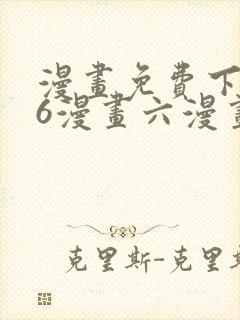 漫畫免費下
6漫畫六漫畫
克里斯-克里斯